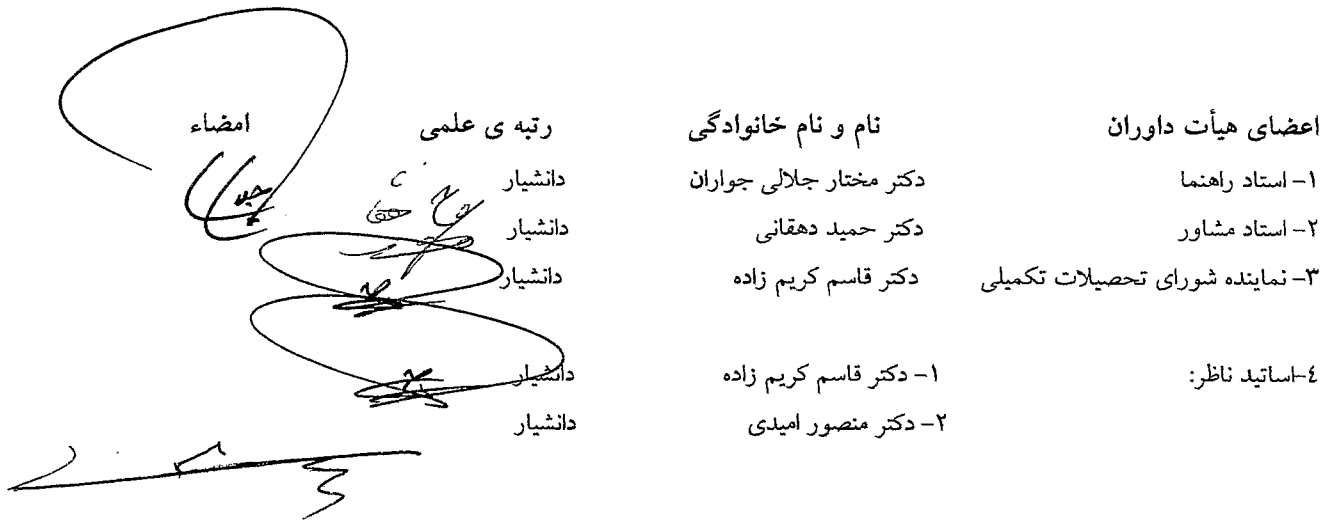 اعضای هیأت داوران نام و نام خانوادگی رتبه ی علمی امضاء
۱- استاد راهنما دکتر مختار جلالی جواران دانشیار
۲- استاد مشاور دکتر حمید دهقانی دانشیار
۳- نماینده شورای تحصیلات تکمیلی دکتر قاسم کریم زاده دانشیار
٤-اساتید ناظر: ۱- دکتر قاسم کریم زاده دانشیار
۲- دکتر منصور امیدی دانشیار